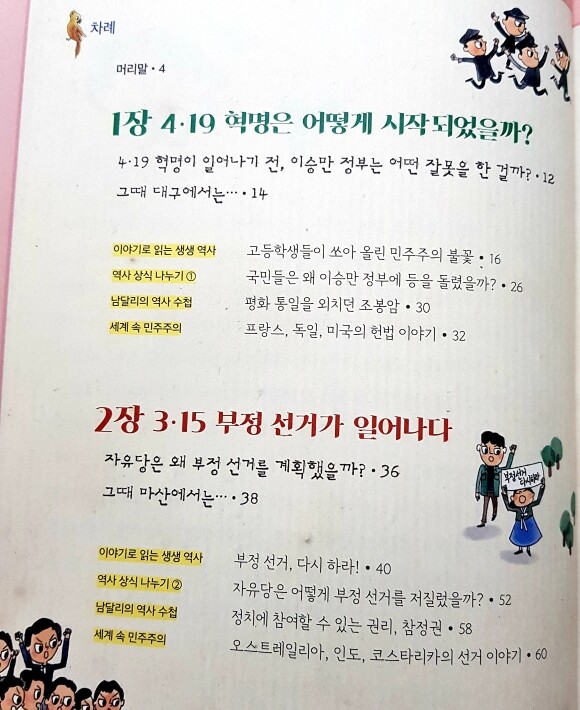 차례
머리말 • 4
1장 4·19 혁명은 어떻게 시작되었을까?
4·19 혁명이 일어나기 전, 이승만 정부는 어떤 잘못을 한 걸까? • 12
그때 대구에서는… • 14
이야기로 읽는 생생 역사 고등학생들이 쏘아 올린 민주주의 불꽃 • 16
역사 상식 나누기 ① 국민들은 왜 이승만 정부에 등을 돌렸을까? • 26
남달리의 역사 수첩 평화 통일을 외치던 조봉암 • 30
세계 속 민주주의 프랑스, 독일, 미국의 헌법 이야기 • 32
2장 3·15 부정 선거가 일어나다
자유당은 왜 부정 선거를 계획했을까? • 36
그때 마산에서는… • 38
부정선거
다시하라
이야기로 읽는 생생 역사 부정 선거, 다시 하라! • 40
역사 상식 나누기 ② 자유당은 어떻게 부정 선거를 저질렀을까? • 52
남달리의 역사 수첩 정치에 참여할 수 있는 권리, 참정권 • 58
세계 속 민주주의 오스트레일리아, 인도, 코스타리카의 선거 이야기 • 60